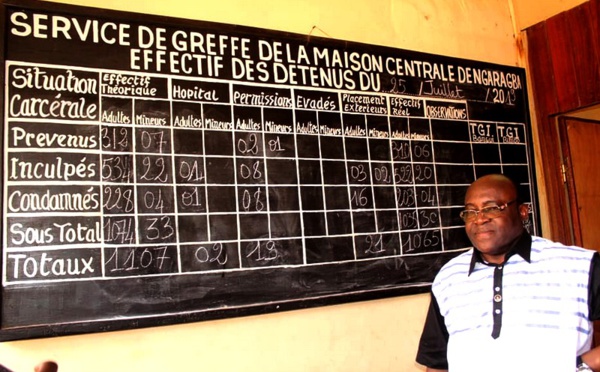 SERVICE DE GREFFE DE LA MAISON CENTRALE DE NGARAGBA
EFFECTIF DES DETENUS DU 25 / Juillet / 201
Situation Carcérale Effectif Théorique Hopital Permissions Evadés Placement Exterieurs Effectif Réel OBSERVATIONS
Adultes Mineurs Adultes Mineurs Adultes Mineurs Adultes Mineurs Adultes Mineurs Adultes Mineurs T.G.I T.G.I
Prevenus 312 07 02 01 06
Inculpés 534 22 01 08 03 02 20
Condamnés 228 04 01 08 16 04
Sous Total 1074 33 30
Totaux 1107 02 13 21 1065